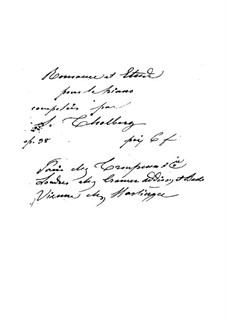 Romance et Etude
pour le piano
composées par
S. Thalberg
op. 38 prix 6 f
Paris chez Troupenas & Cie
Londres chez Cramer Addison et Beale
Vienne chez